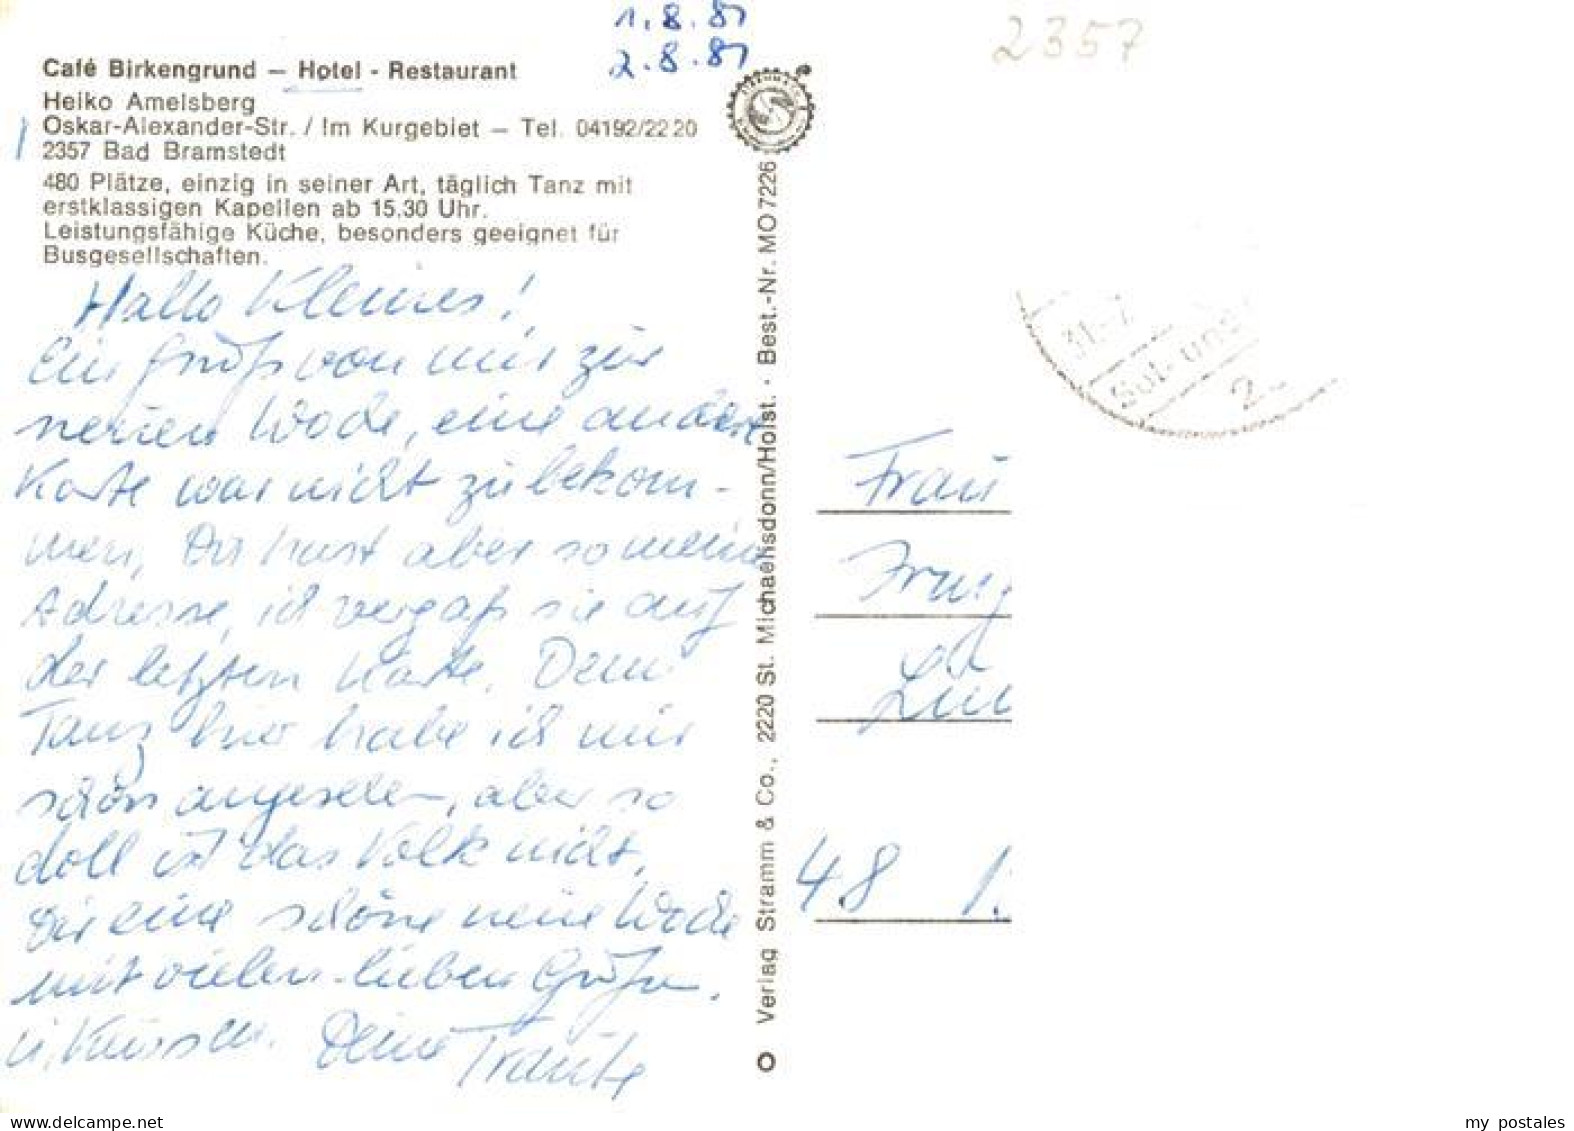 1.8.81
2.8.81
2357
Café Birkengrund — Hotel - Restaurant
Heiko Amelsberg
Oskar-Alexander-Str. / Im Kurgebiet — Tel. 04192/22 20
2357 Bad Bramstedt
480 Plätze, einzig in seiner Art, täglich Tanz mit
erstklassigen Kapellen ab 15.30 Uhr.
Leistungsfähige Küche, besonders geeignet für
Busgesellschaften.
Hallo Kleines!
Ein Gruß von mir zur
neuen Woche, eine andere
Karte war nicht zu bekom-
men, Du hast aber so meine
Adresse, ich vergaß sie auf
der letzten Karte. Dem
Tanz hier habe ich mir
schon angesehen, aber so
doll ist das Volk nicht,
Dir eine schöne neue Woche
mit vielen lieben Grüßen.
u. Küssen. Deine Traute
Verlag Stramm & Co., 2220 St. Michaelisdonn/Holst. · Best.-Nr. MO 7226
31.-7
2
Frau
48 1
my postales